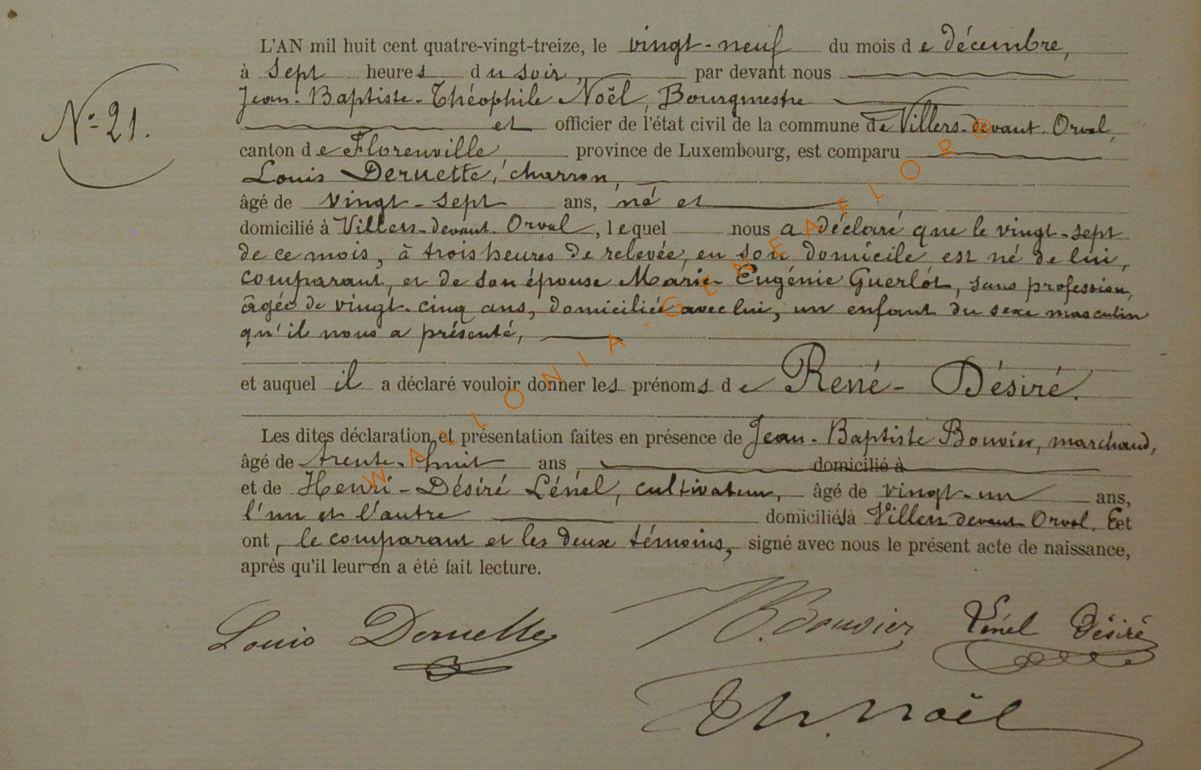 L'AN mil huit cent quatre-vingt-treize, le vingt-neuf du mois de décembre,
à sept heures du soir, par devant nous
Jean-Baptiste-Théophile Noël, Bourgmestre
et officier de l'état civil de la commune de Villers-devant-Orval,
N° 21.
canton de Florenville, province de Luxembourg, est comparu
Louis Deruette, charron,
âgé de vingt-sept ans, né et
domicilié à Villers-devant-Orval, lequel nous a déclaré que le vingt-sept
de ce mois, à trois heures de relevée, en son domicile est né de lui,
comparant, et de son épouse Marie-Eugénie Guerlot, sans profession,
âgée de vingt-cinq ans, domiciliée avec lui, un enfant du sexe masculin
qu'il nous a présenté,
et auquel il a déclaré vouloir donner les prénoms de René-Désiré.
Les dites déclaration et présentation faites en présence de Jean-Baptiste Bouvier, marchand,
âgé de trente-huit ans, domicilié à
et de Henri-Désiré Lénel, cultivateur, âgé de vingt-un ans,
l'un et l'autre domiciliés à Villers devant Orval. Eet
ont, le comparant et les deux témoins, signé avec nous le présent acte de naissance,
après qu'il leur en a été fait lecture.
Louis Deruette
Bouvier
Lénel Désiré
Th. Noël
WALLONIA-GENEAFLOR®